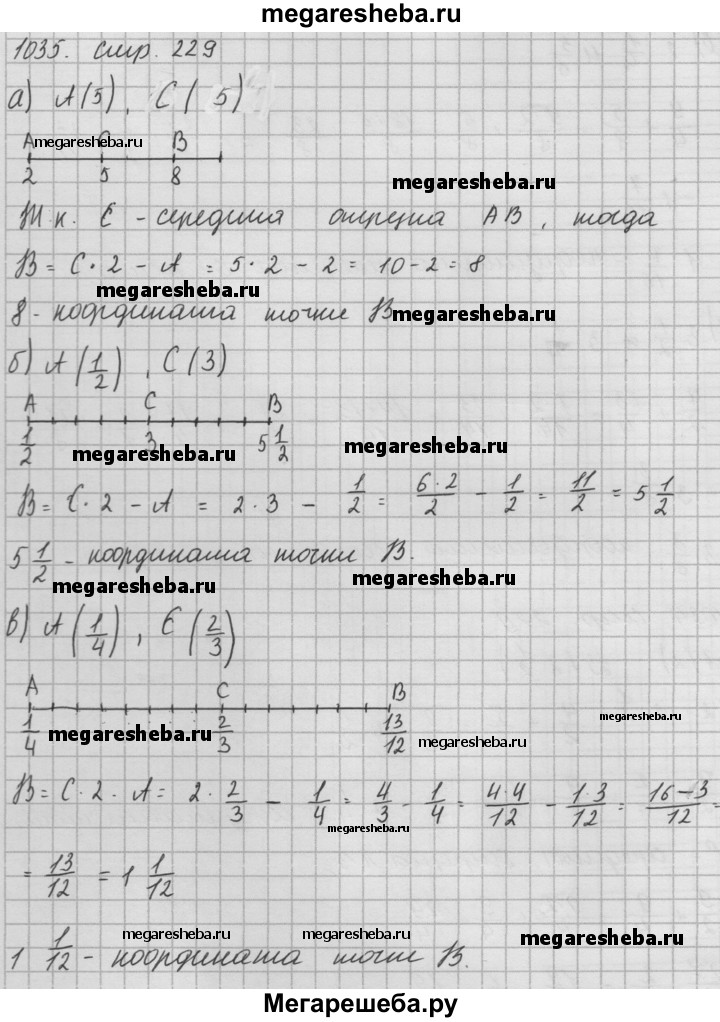 megaresheba.ru
1035. стр. 229
а) A(5), C( 5)
A megaresheba.ru B
2 5 8
megaresheba.ru
Т.к. C - середина отрезка AB, тогда
B = C · 2 - A = 5 · 2 - 2 = 10 - 2 = 8
megaresheba.ru
8 - координата точки B megaresheba.ru
б) A(1/2), C(3)
A C B
1/2 3 5 1/2
megaresheba.ru megaresheba.ru
B = C · 2 - A = 2 · 3 - 1/2 = 6·2/2 - 1/2 = 11/2 = 5 1/2
5 1/2 - координата точки B.
megaresheba.ru megaresheba.ru
в) A(1/4), C(2/3)
A C B
1/4 2/3 13/12
megaresheba.ru megaresheba.ru megaresheba.ru
B = C · 2 · A = 2 · 2/3 - 1/4 = 4/3 - 1/4 = 4·4/12 - 1·3/12 = 16-3/12 =
megaresheba.ru
= 13/12 = 1 1/12
megaresheba.ru megaresheba.ru megaresheba.ru
1 1/12 - координата точки B.
Мегарешеба.ру